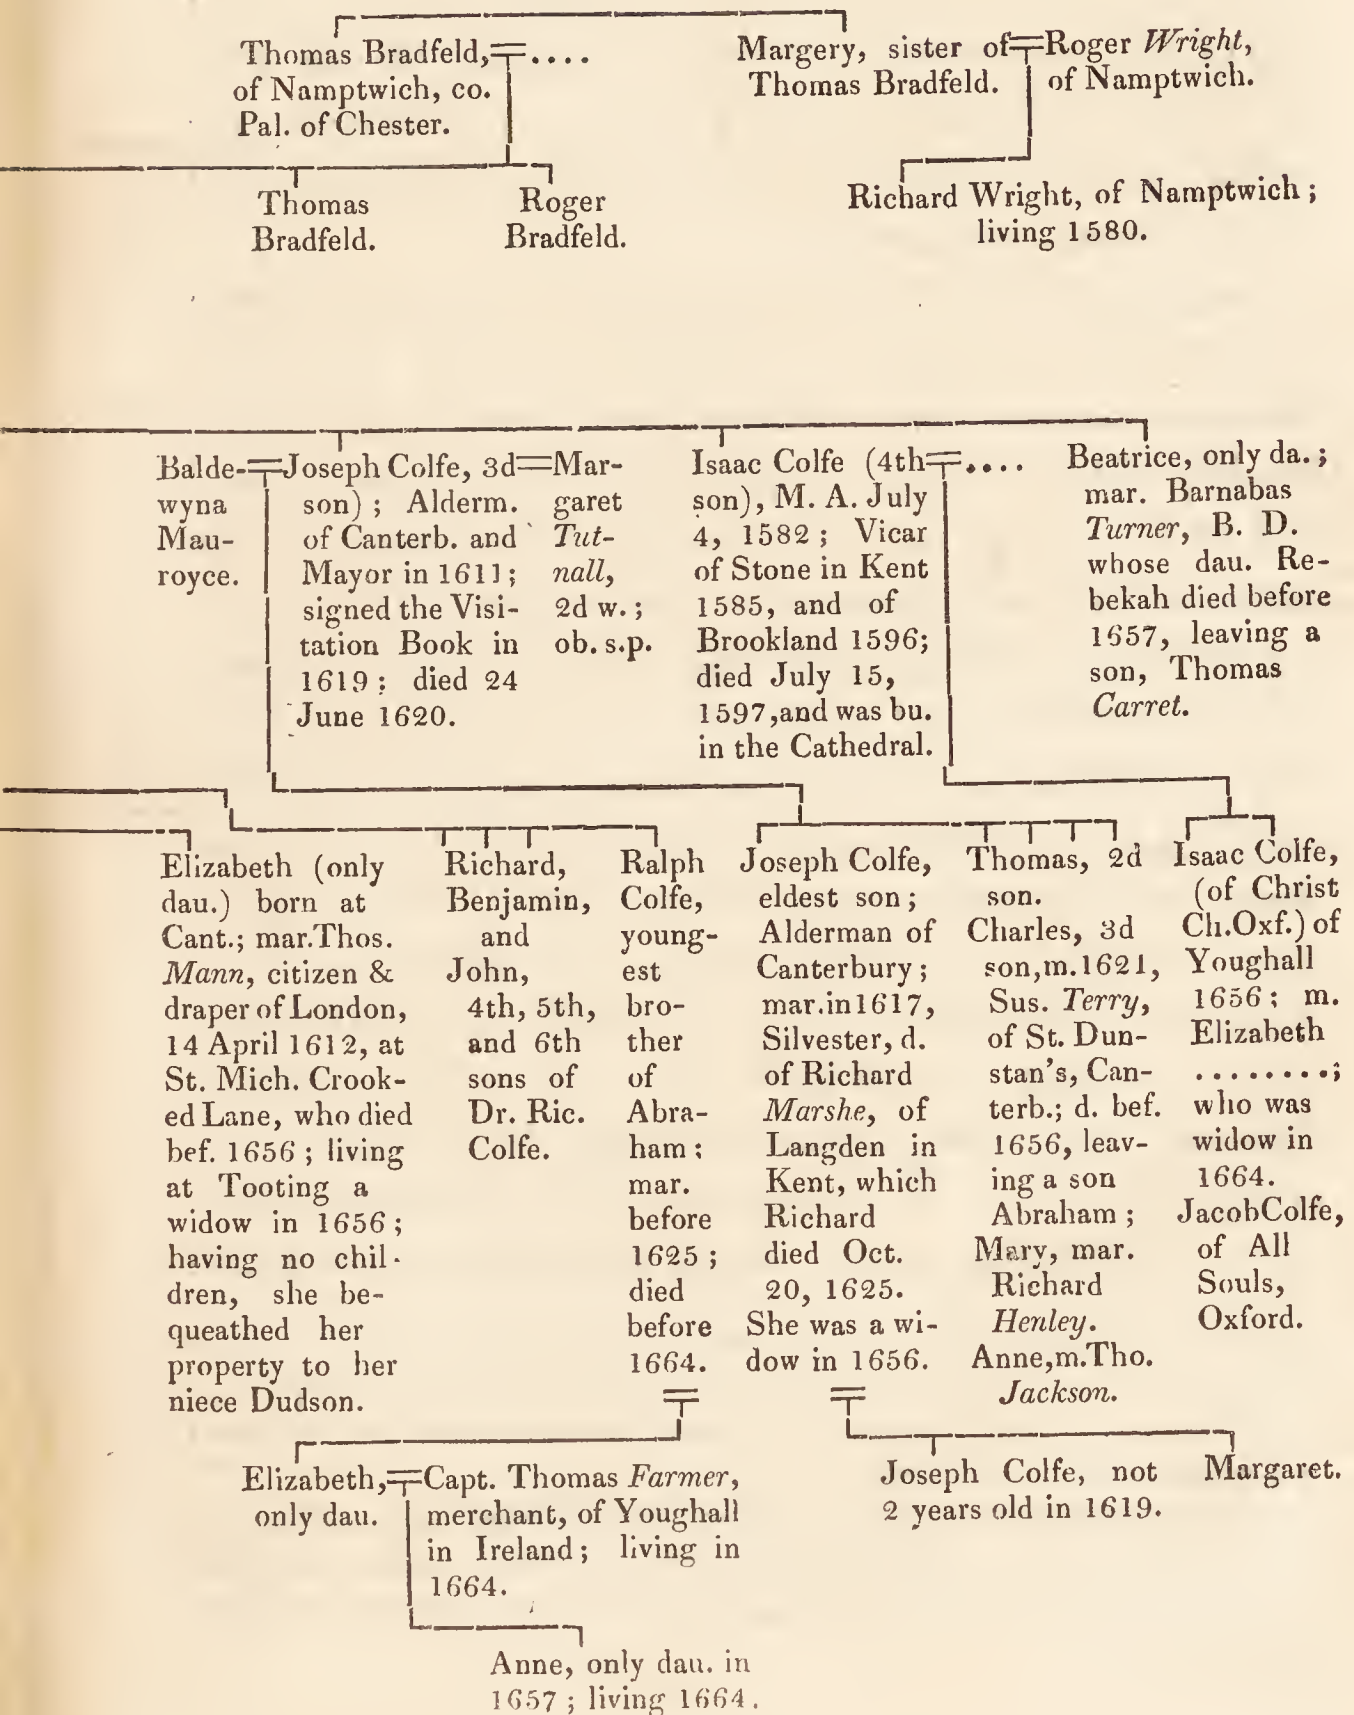 Thomas Bradfeld,
of Namptwich, co.
Pal. of Chester.
....
Margery, sister of
Thomas Bradfeld.
Roger Wright,
of Namptwich.
Thomas
Bradfeld.
Roger
Bradfeld.
Richard Wright, of Namptwich;
living 1580.
Balde-
wyna
Mau-
royce.
Joseph Colfe, 3d
son); Alderm.
of Canterb. and
Mayor in 1611;
signed the Visi-
tation Book in
1619; died 24
June 1620.
Mar-
garet
Tut-
nall,
2d w.;
ob. s.p.
Isaac Colfe (4th
son), M. A. July
4, 1582; Vicar
of Stone in Kent
1585, and of
Brookland 1596;
died July 15,
1597, and was bu.
in the Cathedral.
....
Beatrice, only da.;
mar. Barnabas
Turner, B. D.
whose dau. Re-
bekah died before
1657, leaving a
son, Thomas
Carret.
Elizabeth (only
dau.) born at
Cant.; mar. Thos.
Mann, citizen &
draper of London,
14 April 1612, at
St. Mich. Crook-
ed Lane, who died
bef. 1656; living
at Tooting a
widow in 1656;
having no chil-
dren, she be-
queathed her
property to her
niece Dudson.
Richard,
Benjamin,
and
John,
4th, 5th,
and 6th
sons of
Dr. Ric.
Colfe.
Ralph
Colfe,
young-
est
bro-
ther
of
Abra-
ham;
mar.
before
1625;
died
before
1664.
Joseph Colfe,
eldest son;
Alderman of
Canterbury;
mar. in 1617,
Silvester, d.
of Richard
Marshe, of
Langden in
Kent, which
Richard
died Oct.
20, 1625.
She was a wi-
dow in 1656.
Thomas, 2d
son.
Charles, 3d
son, m. 1621,
Sus. Terry,
of St. Dun-
stan's, Can-
terb.; d. bef.
1656, leav-
ing a son
Abraham;
Mary, mar.
Richard
Henley.
Anne, m. Tho.
Jackson.
Isaac Colfe,
(of Christ
Ch. Oxf.) of
Youghall
1656; m.
Elizabeth
........;
who was
widow in
1664.
Jacob Colfe,
of All
Souls,
Oxford.
Elizabeth,
only dau.
Capt. Thomas Farmer,
merchant, of Youghall
in Ireland; living in
1664.
Joseph Colfe, not
2 years old in 1619.
Margaret.
Anne, only dau. in
1657; living 1664.